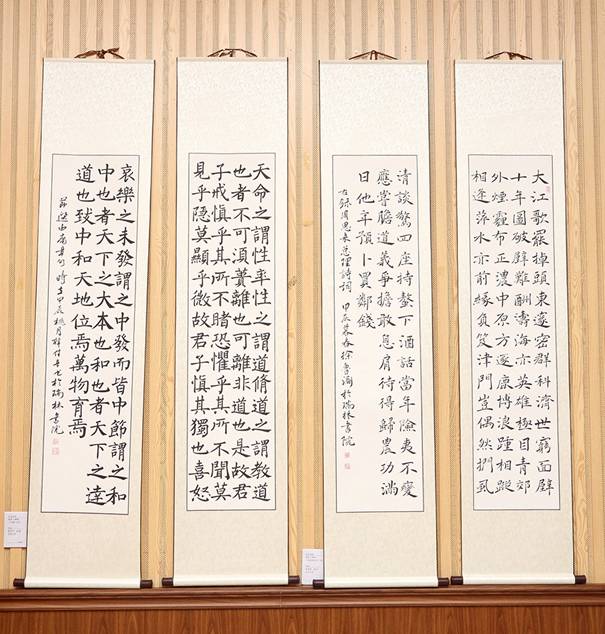 大江歌罷掉頭東邃密群科濟世窮面壁
十年圖破壁難酬蹈海亦英雄極目青郊
外煙靄布正濃中原方逐鹿博浪踵相蹤
相逢萍水亦前緣負笈津門豈偶然捫虱
清談驚四座持螯下酒話當年險夷不變
應嘗膽道義爭擔敢息肩待得歸農功滿
日他年預卜買鄰錢
右錄周恩來總理詩詞 甲辰暮春徐於瑞林書院
天命之謂性率性之謂道脩道之謂教道
也者不可須臾離也可離非道也是故君
子戒慎乎其所不睹恐懼乎其所不聞莫
見乎隱莫顯乎微故君子慎其獨也喜怒
哀樂之未發謂之中發而皆中節謂之和
中也者天下之大本也和也者天下之達
道也致中和天地位焉萬物育焉
節選中庸章句 時在甲辰桃月於瑞林書院